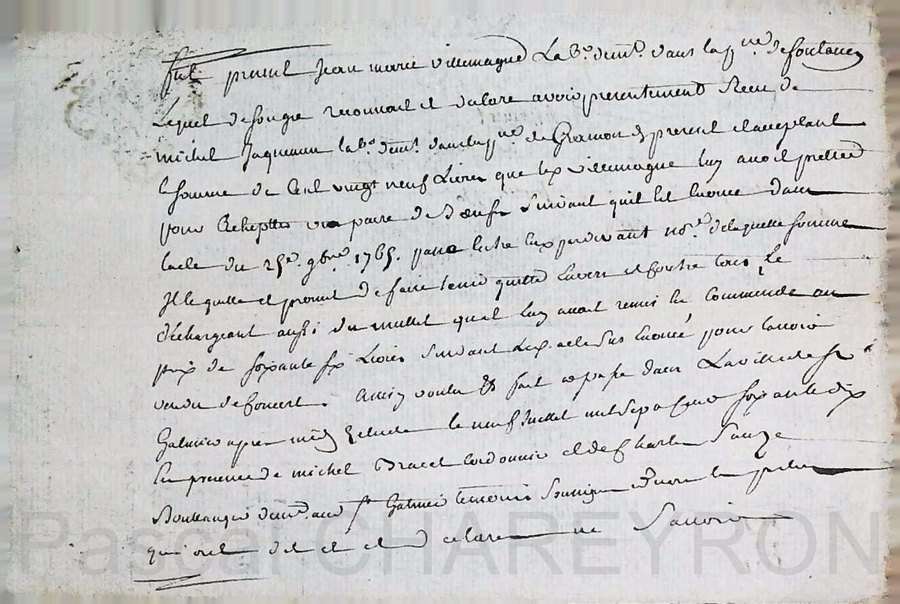 fut present Jean marie villemagne Lab.r dem.t dans la p.sse de fontanes
Lequel de son gre reconnait et declare avoir presentement Receu de
michel Jaquemin lab.r dem.t dans la p.sse de Gramon present et acceptant
la somme de Cent vingt neuf Livres que led villemagne luy avoit
pour achepter une paire de Bœufs suivant quil est enoncé dans
lacte du 25e. 9bre. 1765. passé entre eux pardevant no.re de laquelle somme
Il le quitte et promet de faire tenir quitte Envers et Contre tous, Le
déchargeant aussi du mullet quil luy avoit remis en Commende au
prix de soixante six Livres suivant led. acte sus énoncé pour lavoir
vendu de Concert. Ainsy voulu fait et passé dans La ville de St
Galmier apres midy Etude le neuf Juillet mil sept Cent soixante dix
En presence de michel Cordonnier et de Charles Sauze
Boulanger dem.t aud St Galmier temoins Soussignés les parties
qui ont dit et declaré ne Sçavoir
Pascal CHAREYRON